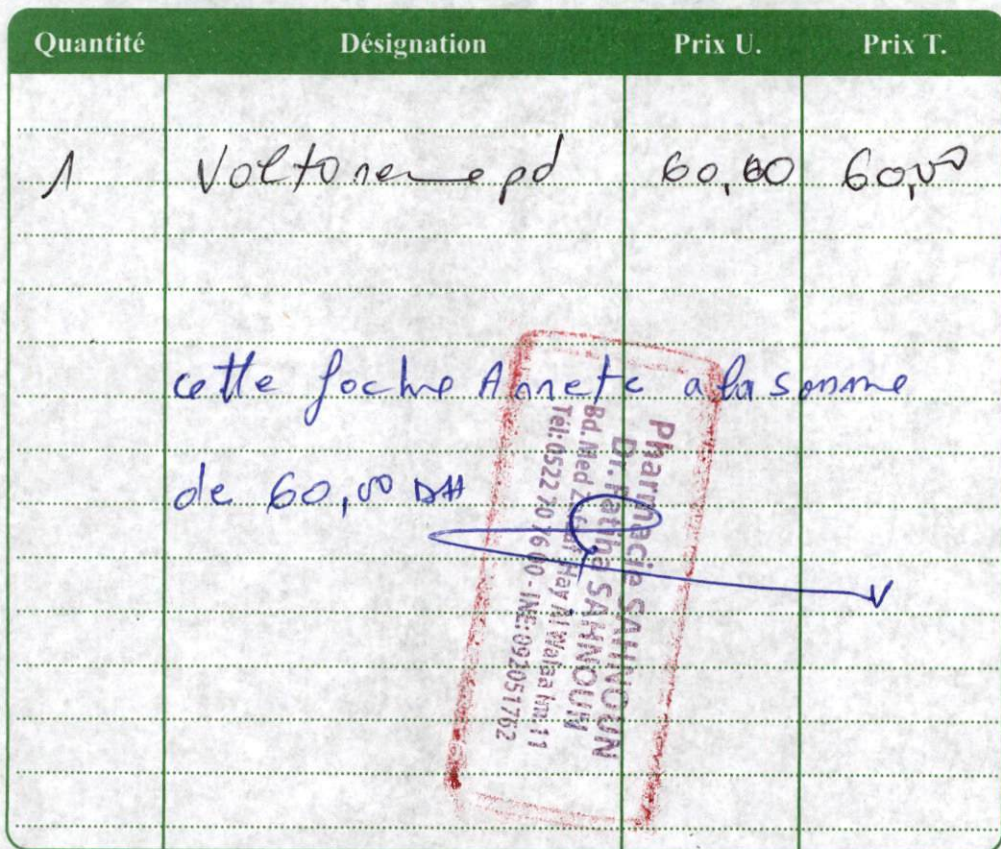 Quantité Désignation Prix U. Prix T.
1 60,00 60,00
cette a la somme
de 60,00 DH
Pharmacie SAHNOUN
Dr. Fatiha SAHNOUN
Bd. Med Hay Al Walaa Imm 11
Tél: 0522 70 76 00 - INE: 092051762